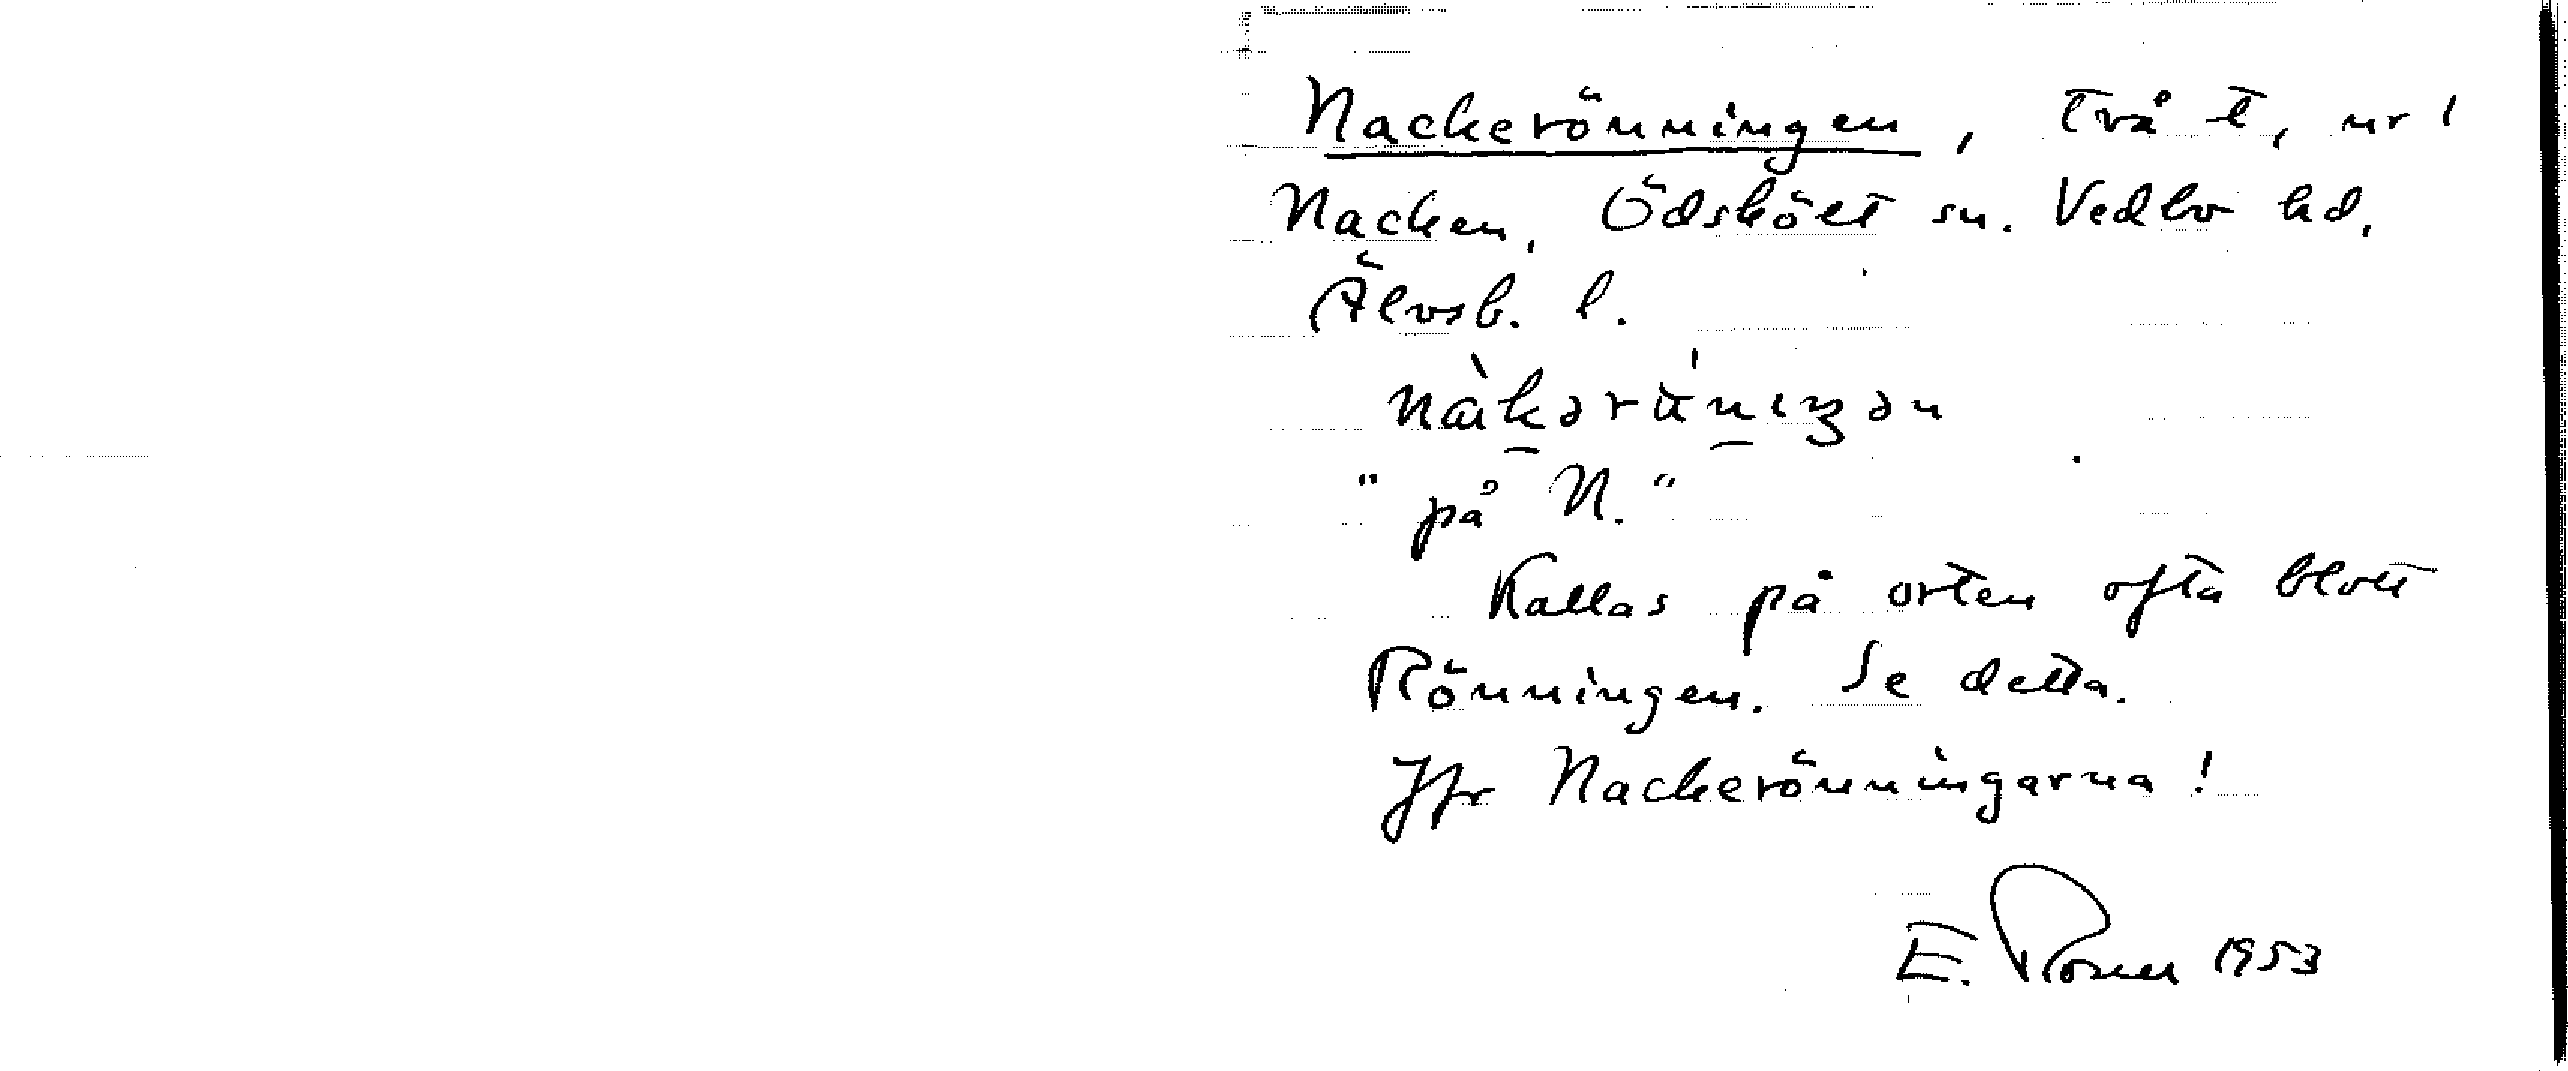 Nackerönningen, två t, ur 1
Nacken, Ödskölt sn. Vedbo hd,
Älvsb. l.
"på N."
Kallas på orten ofta blott
Rönningen. Se detta.
Jfr Nackerönningarna!
E. Rosen 1953